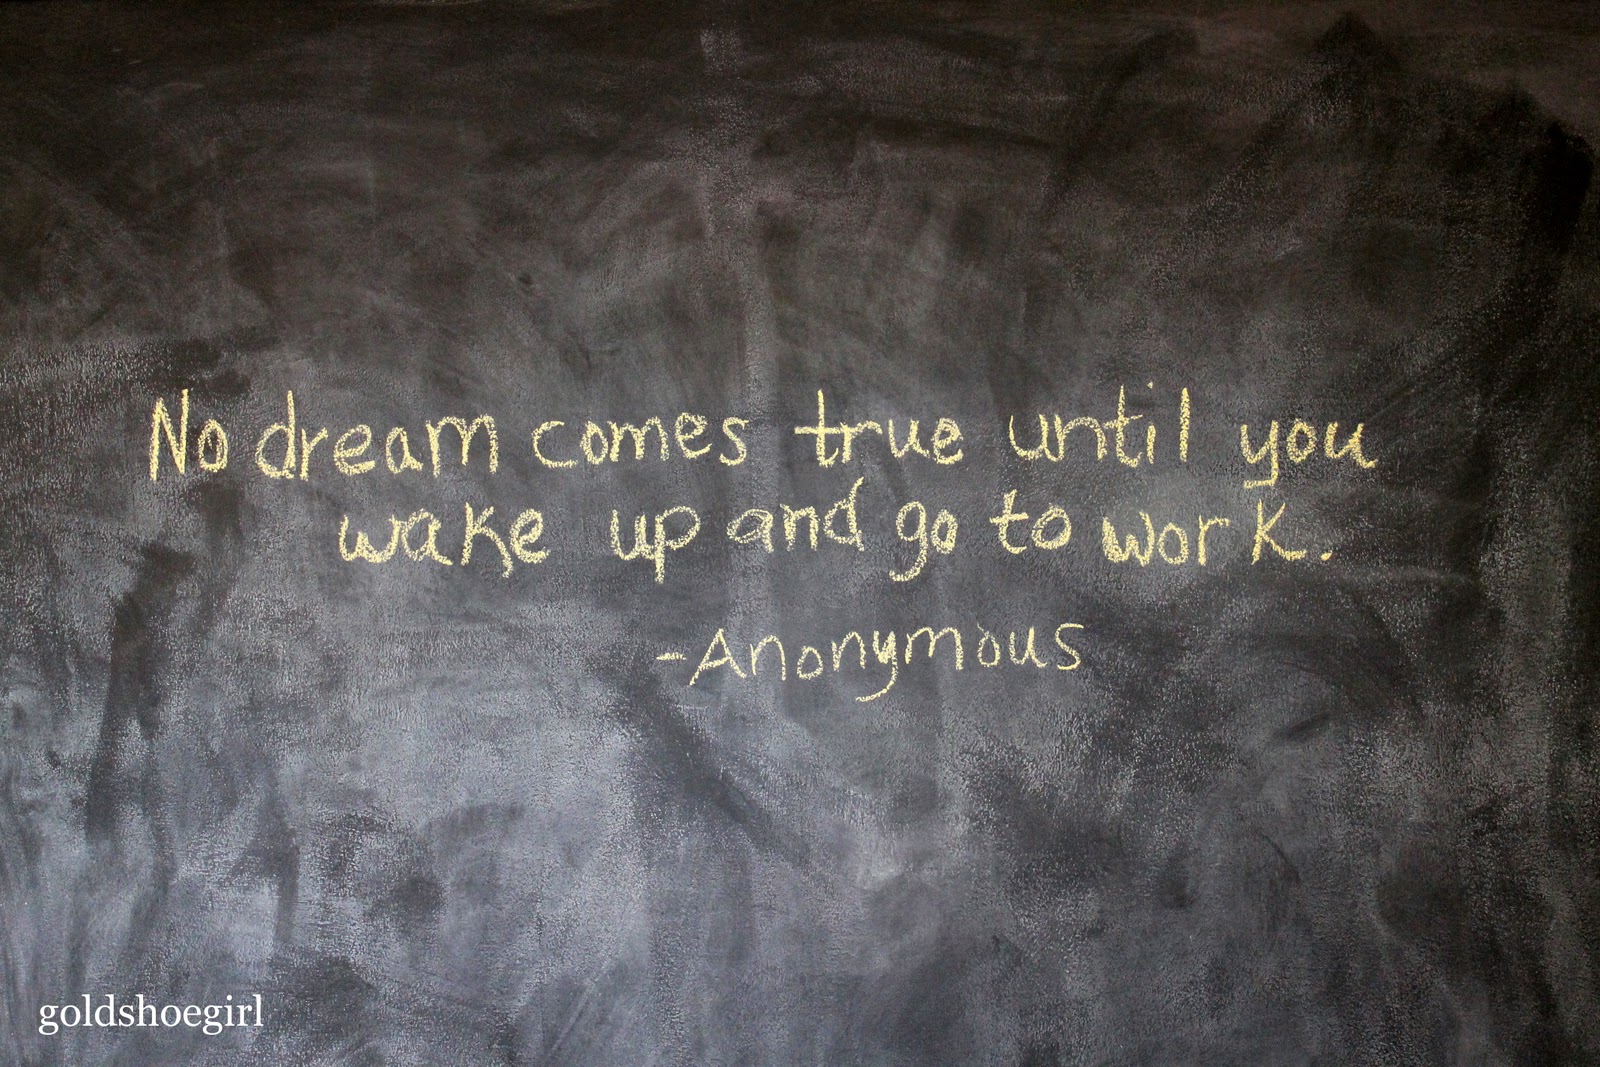 No dream comes true until you
wake up and go to work.
-Anonymous
goldshoegirl